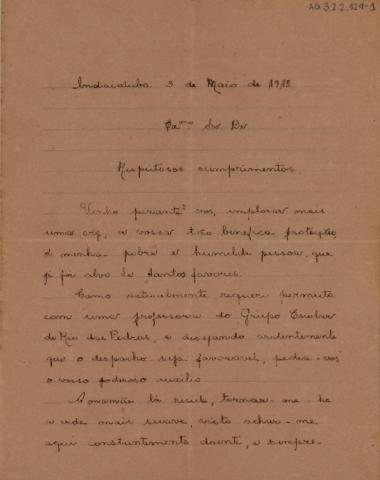 AG.3.2.2.124-1
Indaiatuba 3 de Maio de 1918
Exmo Sr Dr
Respeitosos cumprimentos
Venho perante vos, implorar mais
uma vez, a vossa tão benefica protecção
á minha pobre e humilde pessoa, que
já foi alvo de tantos favores.
Como actualmente requeri permuta
com uma professora do Grupo Escolar
de Rio das Pedras, e desejando ardentemente
que o despacho seja favoravel, pedia-vos
o vosso poderoso auxilio
A mamãe lá reside, tornar-me-ha
a vida mais suave, visto achar-me
aqui constantemente doente, e sempre